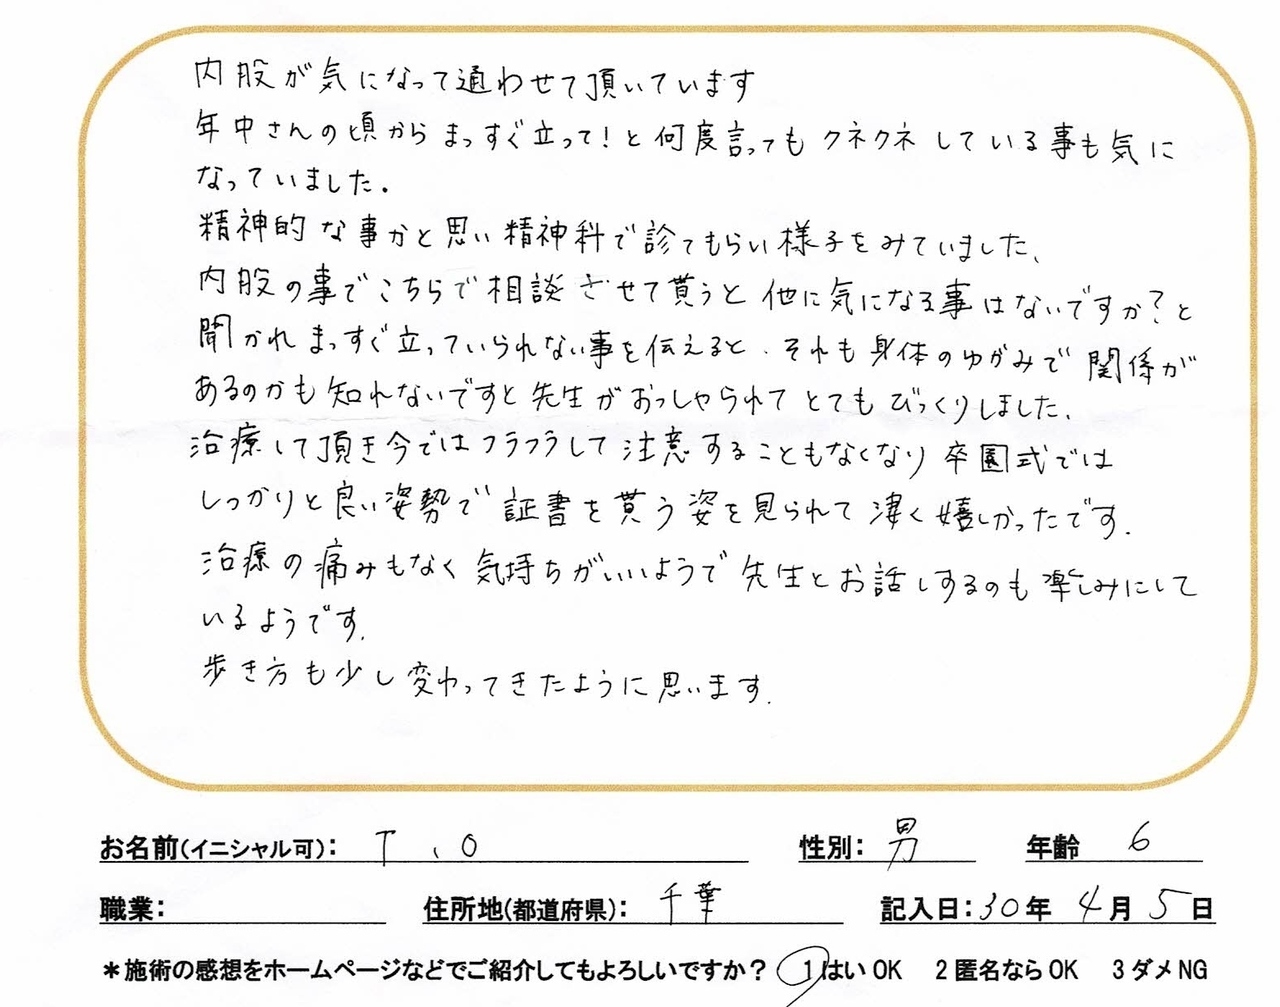 内股が気になって通わせて頂いています
年中さんの頃からまっすぐ立って!と何度言ってもクネクネしている事も気に
なっていました。
精神的な事かと思い精神科で診てもらい様子をみていました、
内股の事でこちらで相談させて貰うと他に気になる事はないですか?と
聞かれまっすぐ立っていられない事を伝えると、それも身体のゆがみで関係が
あるのかも知れないですと先生がおっしゃられてとてもびっくりしました、
治療して頂き今ではフラフラして注意することもなくなり卒園式では
しっかりと良い姿勢で証書を貰う姿を見られて凄く嬉しかったです.
治療の痛みもなく気持ちがいいようで先生とお話しするのも楽しみにして
いるようです.
歩き方も少し変わってきたように思います.
お名前(イニシャル可): T 、O 性別: 男 年齢 6
職業: 住所地(都道府県): 千葉 記入日: 30年 4月 5日
*施術の感想をホームページなどでご紹介してもよろしいですか? 1はいOK 2匿名ならOK 3ダメNG